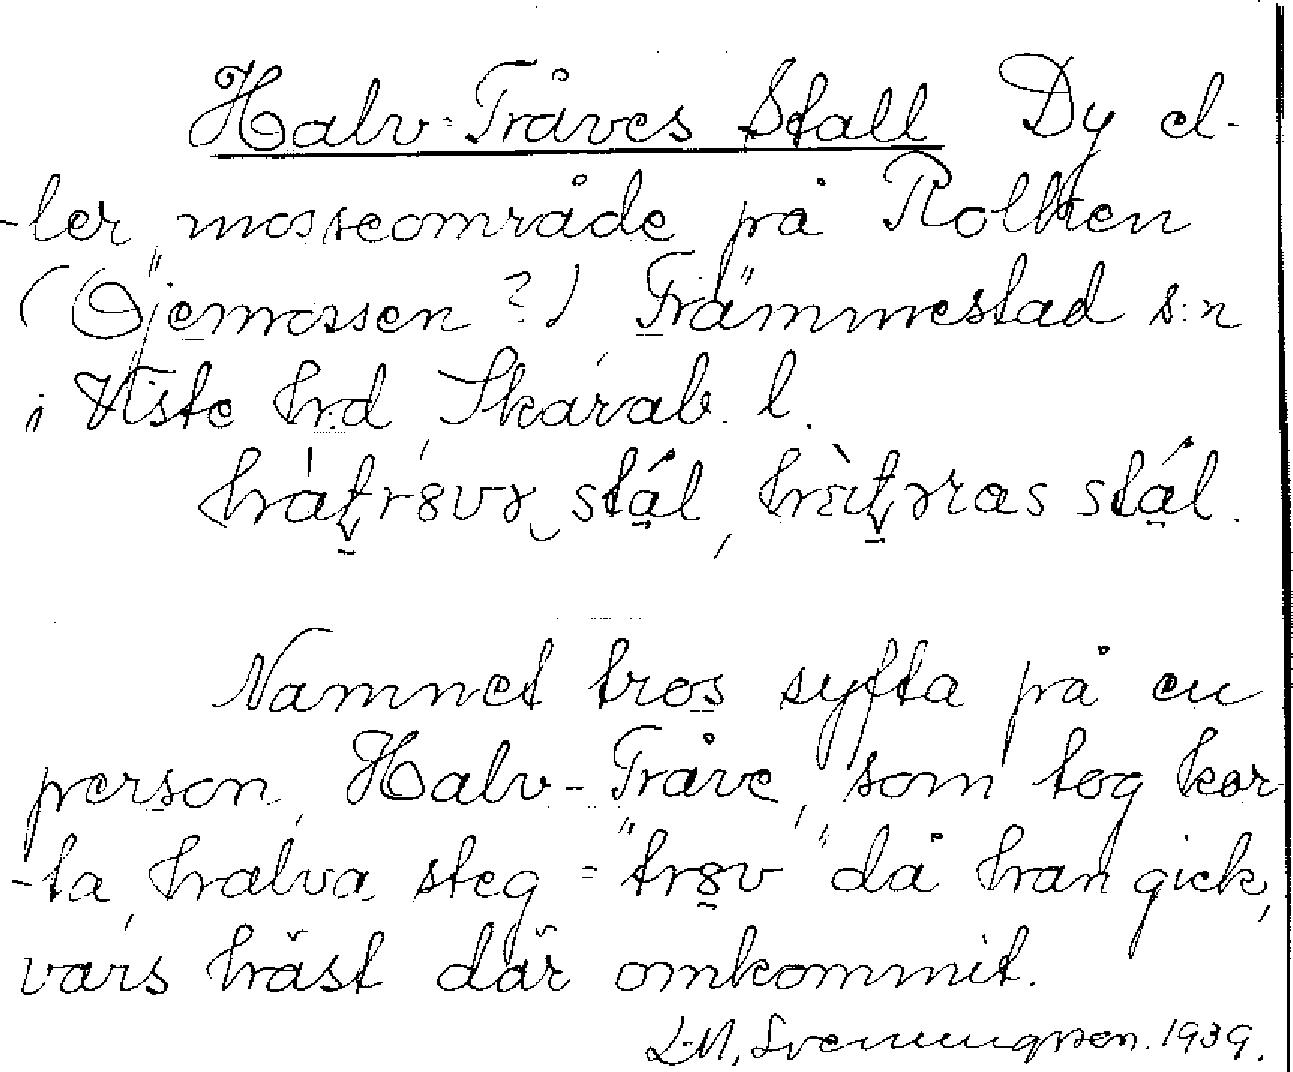 Halv-Tråves Stall Dy el-
-ler mosseområde på Rolken
(Öjemossen?) Främmestad s:n
i Viste hrd, Skarab. l.
stal, stal.
Namnet tros syfta på en
person, Halv-Tråve, som tog kor
-ta, halva steg = "trov" då han gick,
vars häst där omkommit.
L.M. Svenungsson. 1939.